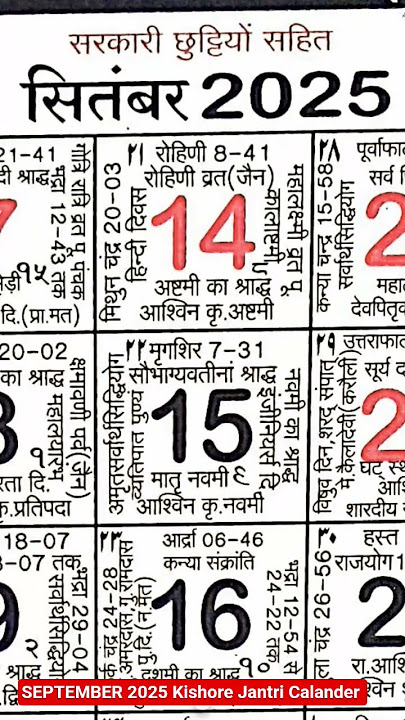 सरकारी छुट्टियों सहित
सितंबर 2025
21-41
२१ रोहिणी 8-41
२८ पूर्वाफाल
दी श्राद्ध
रोहिणी व्रत(जैन)
सर्व पि
भद्रा 12-43 तक
मिथुन चंद्र 20-03
हिन्दी दिवस
14
महालक्ष्मी व्रत पू.
कालाष्टमी
कन्या चन्द्र 15-58
सर्वार्थसिद्धियोग
2
१५
अष्टमी का श्राद्ध
महाल
दि.(प्रा.मत)
आश्विन कृ.अष्टमी
देवपितृक
20-02
२२ मृगशिर 7-31
२९ उत्तराफाल
का श्राद्ध
सौभाग्यवतीनां श्राद्ध
सूर्य द
महालयारंभ
क्षमावाणी पर्व (जैन)
अमृतसर्वार्थसिद्धियोग
व्यतिपात पुण्य
15
इंजीनियर्स दि
नवमी का श्राद्ध
विषुव दिन,शरद संपात
मे.कैलादेवी(करौली)
2
रता दि.
मातृ नवमी ९
घट स्थ
कृ.प्रतिपदा
आश्विन कृ.नवमी
शारदीय
18-07
२३ आर्द्रा 06-46
३० हस्त
8-07 तक
कन्या संक्रांति
राजयोग
भद्रा 29-04
सर्वार्थसिद्धियो
9
२
कर्क चंद्र 24-28
पु.दि.(न.मत)
16
भद्रा 12-54 से
24-22 तक
तुला चंद्र 26-56
2
श्राद्ध
दशमी का श्राद्ध १०
रा.आशि
SEPTEMBER 2025 Kishore Jantri Calander